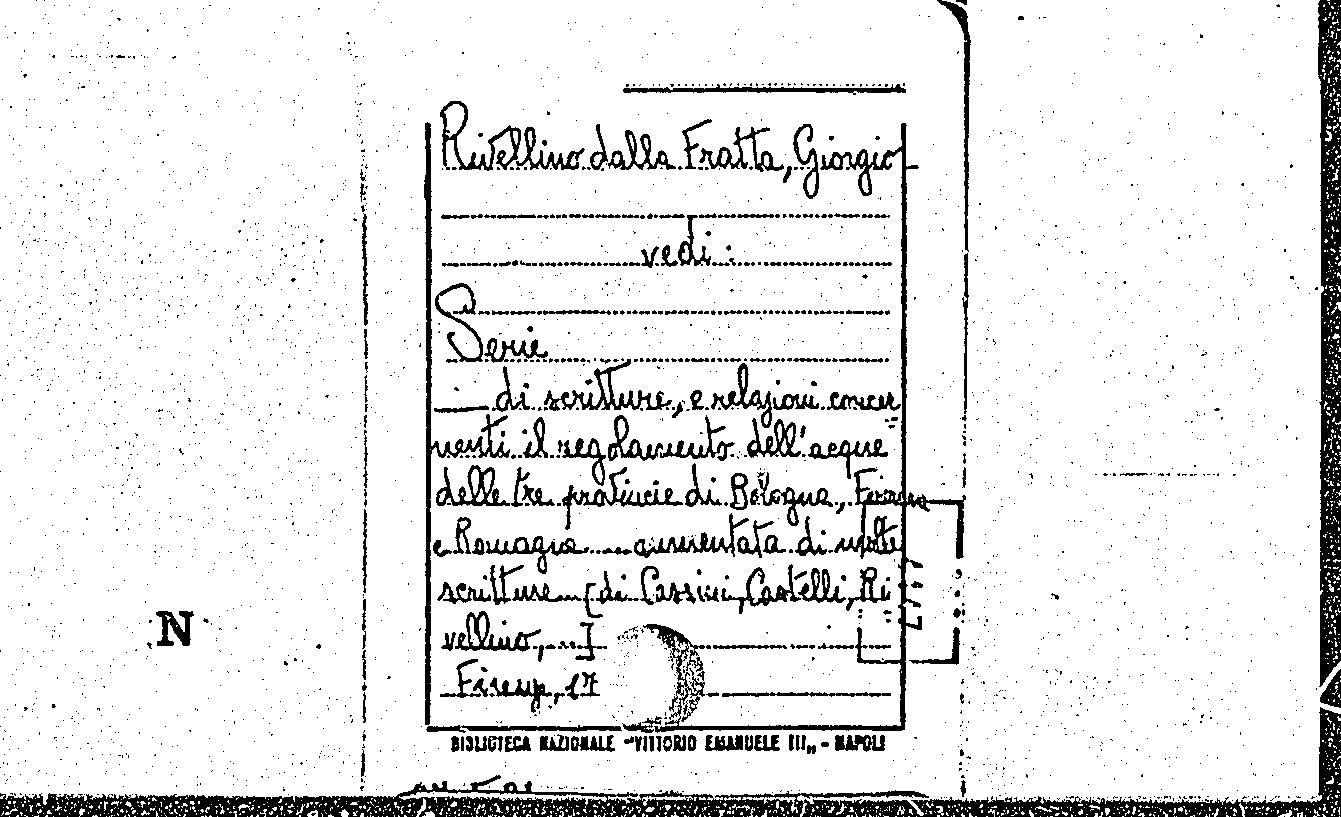 Rivellino dalla Fratta, Giorgio
vedi:
Serie
— di scritture, e relazioni concer
nenti il regolamento dell'acque
delle tre provincie di Bologna, Ferrara
e Romagna.... aumentata di molte
scritture... [di Cassini, Castelli, Ri
vellino,...]
Firenze, 17
N
BIBLIOTECA NAZIONALE "VITTORIO EMANUELE III" - NAPOLI